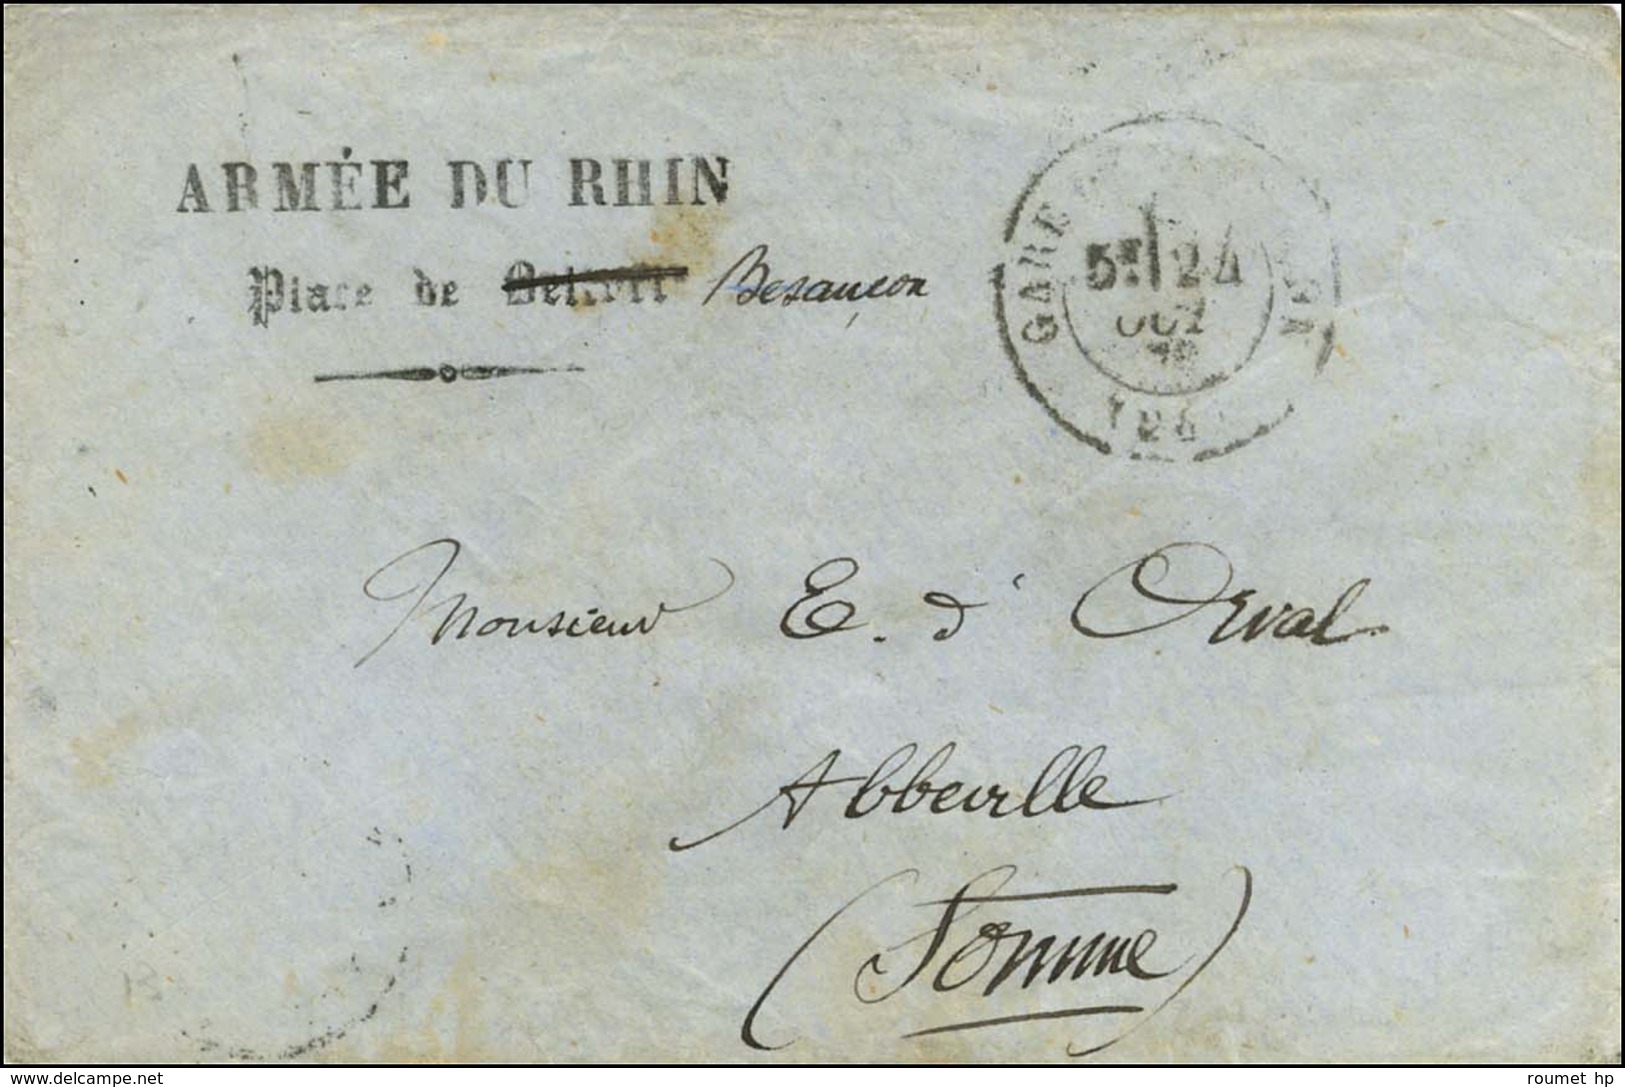 ARMÉE DU RHIN
Place de Besançon
GARE
5E 24
OCT
Monsieur E. d'Orval
Abbeville
(Somme)
www.delcampe.net
roumet hp